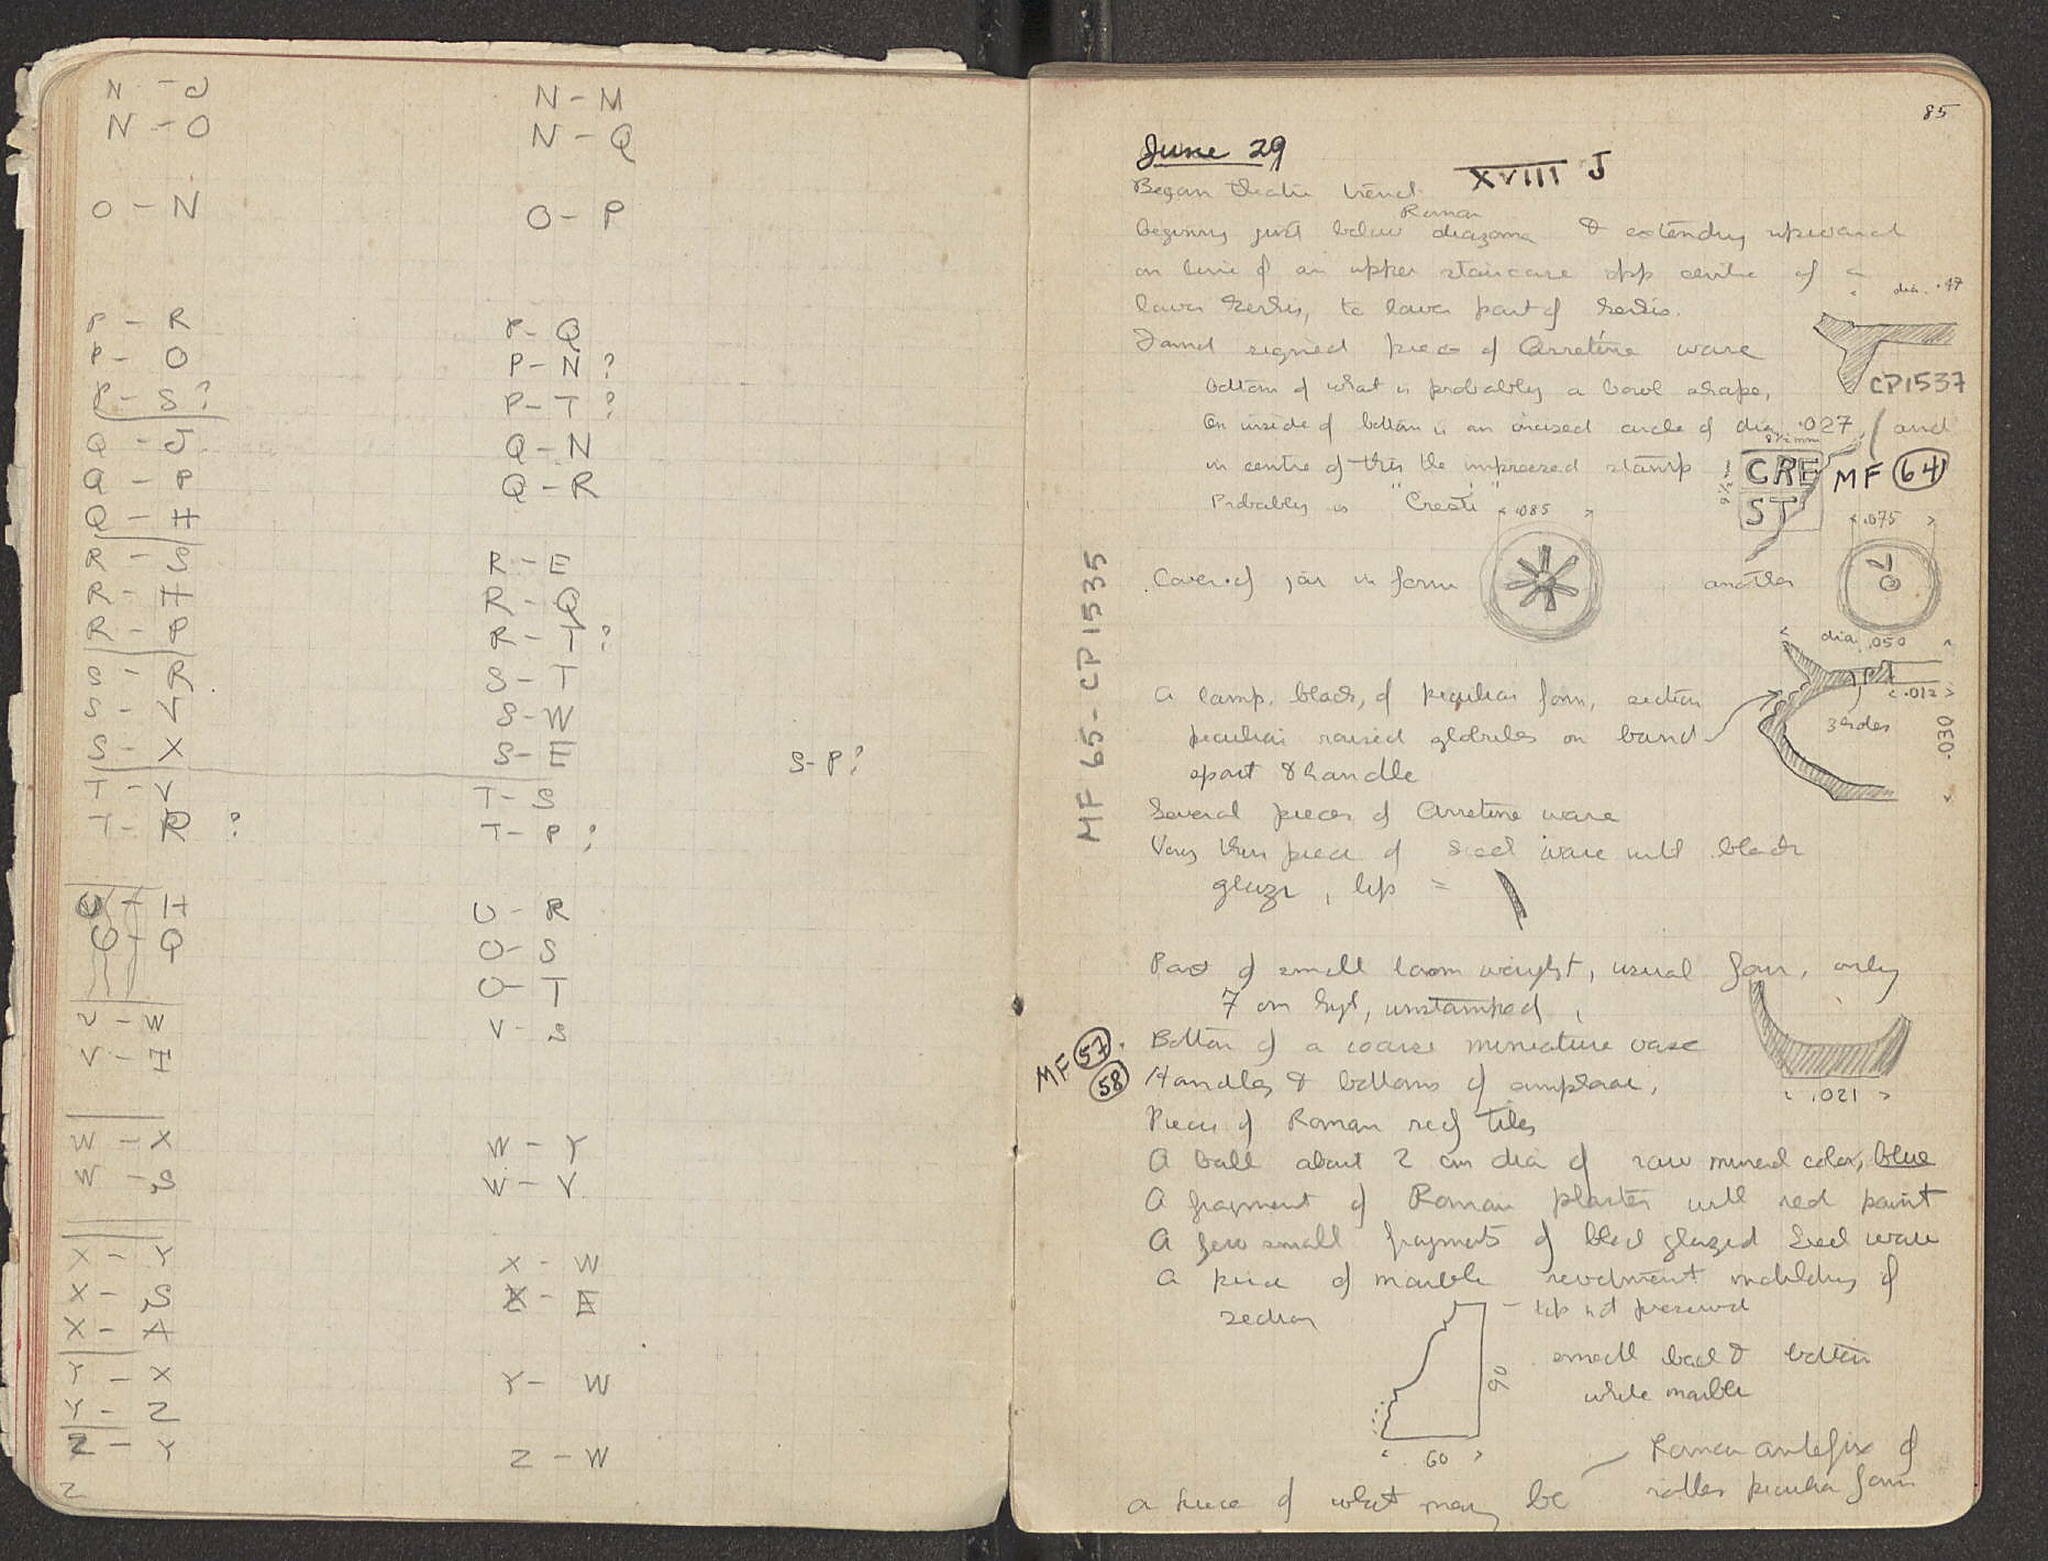 N - J
N - O
O - N
P - R
P - O
P - S ?
Q - J
Q - P
Q - H
R - S
R - H
R - P
S - R
S - V
S - X
T - V
T - R ?
U - H
U - Q
V - W
V - I
W - X
W - S
X - Y
X - S
X - A
Y - X
Y - Z
Z - Y
Z
N - M
N - Q
O - P
P - Q
P - N ?
P - T ?
Q - N
Q - R
R - E
R - Q
R - T ?
S - T
S - W
S - E
S - P ?
T - S
T - P ?
U - R
U - S
U - T
V - S
W - Y
W - V
X - W
Y - W
Z - W
85
June 29
XVIII J
Began theatre trench
Roman
beginning just below diazoma & extending upward
on line of an upper staircase opp centre of a
lower kerkis, to lower part of kerkis.
dia. .47
Found signed piece of Arretine ware
bottom of what is probably a bowl shape,
CP1537
On inside of bottom is an incised circle of dia .027, and
in centre of this the impressed stamp
8½ mm
9½ mm
CRE
ST
MF 64
Probably is "Cresti"
.085
.075
Cover of jar in form
another
MF 65 - CP1535
dia. .050
.012
3 holes
.030
A lamp, black, of peculiar form, section
peculiar raised globules on band
spout & handle
Several pieces of Arretine ware
Very thin piece of Greek ware with black
glaze, lip =
Part of small loom weight, usual form, only
7 cm hgt, unstamped,
MF 57
58
Bottom of a coarse miniature vase
.021
Handles & bottoms of amphorae,
Pieces of Roman roof tiles
A ball about 2 cm dia of raw mineral color, blue
A fragment of Roman plaster with red paint
A few small fragments of black glazed Greek ware
A piece of marble revetment moulding of
section
- top not preserved
90
60
small back & bottom
white marble
a piece of what may be
Roman antefix of
rather peculiar form